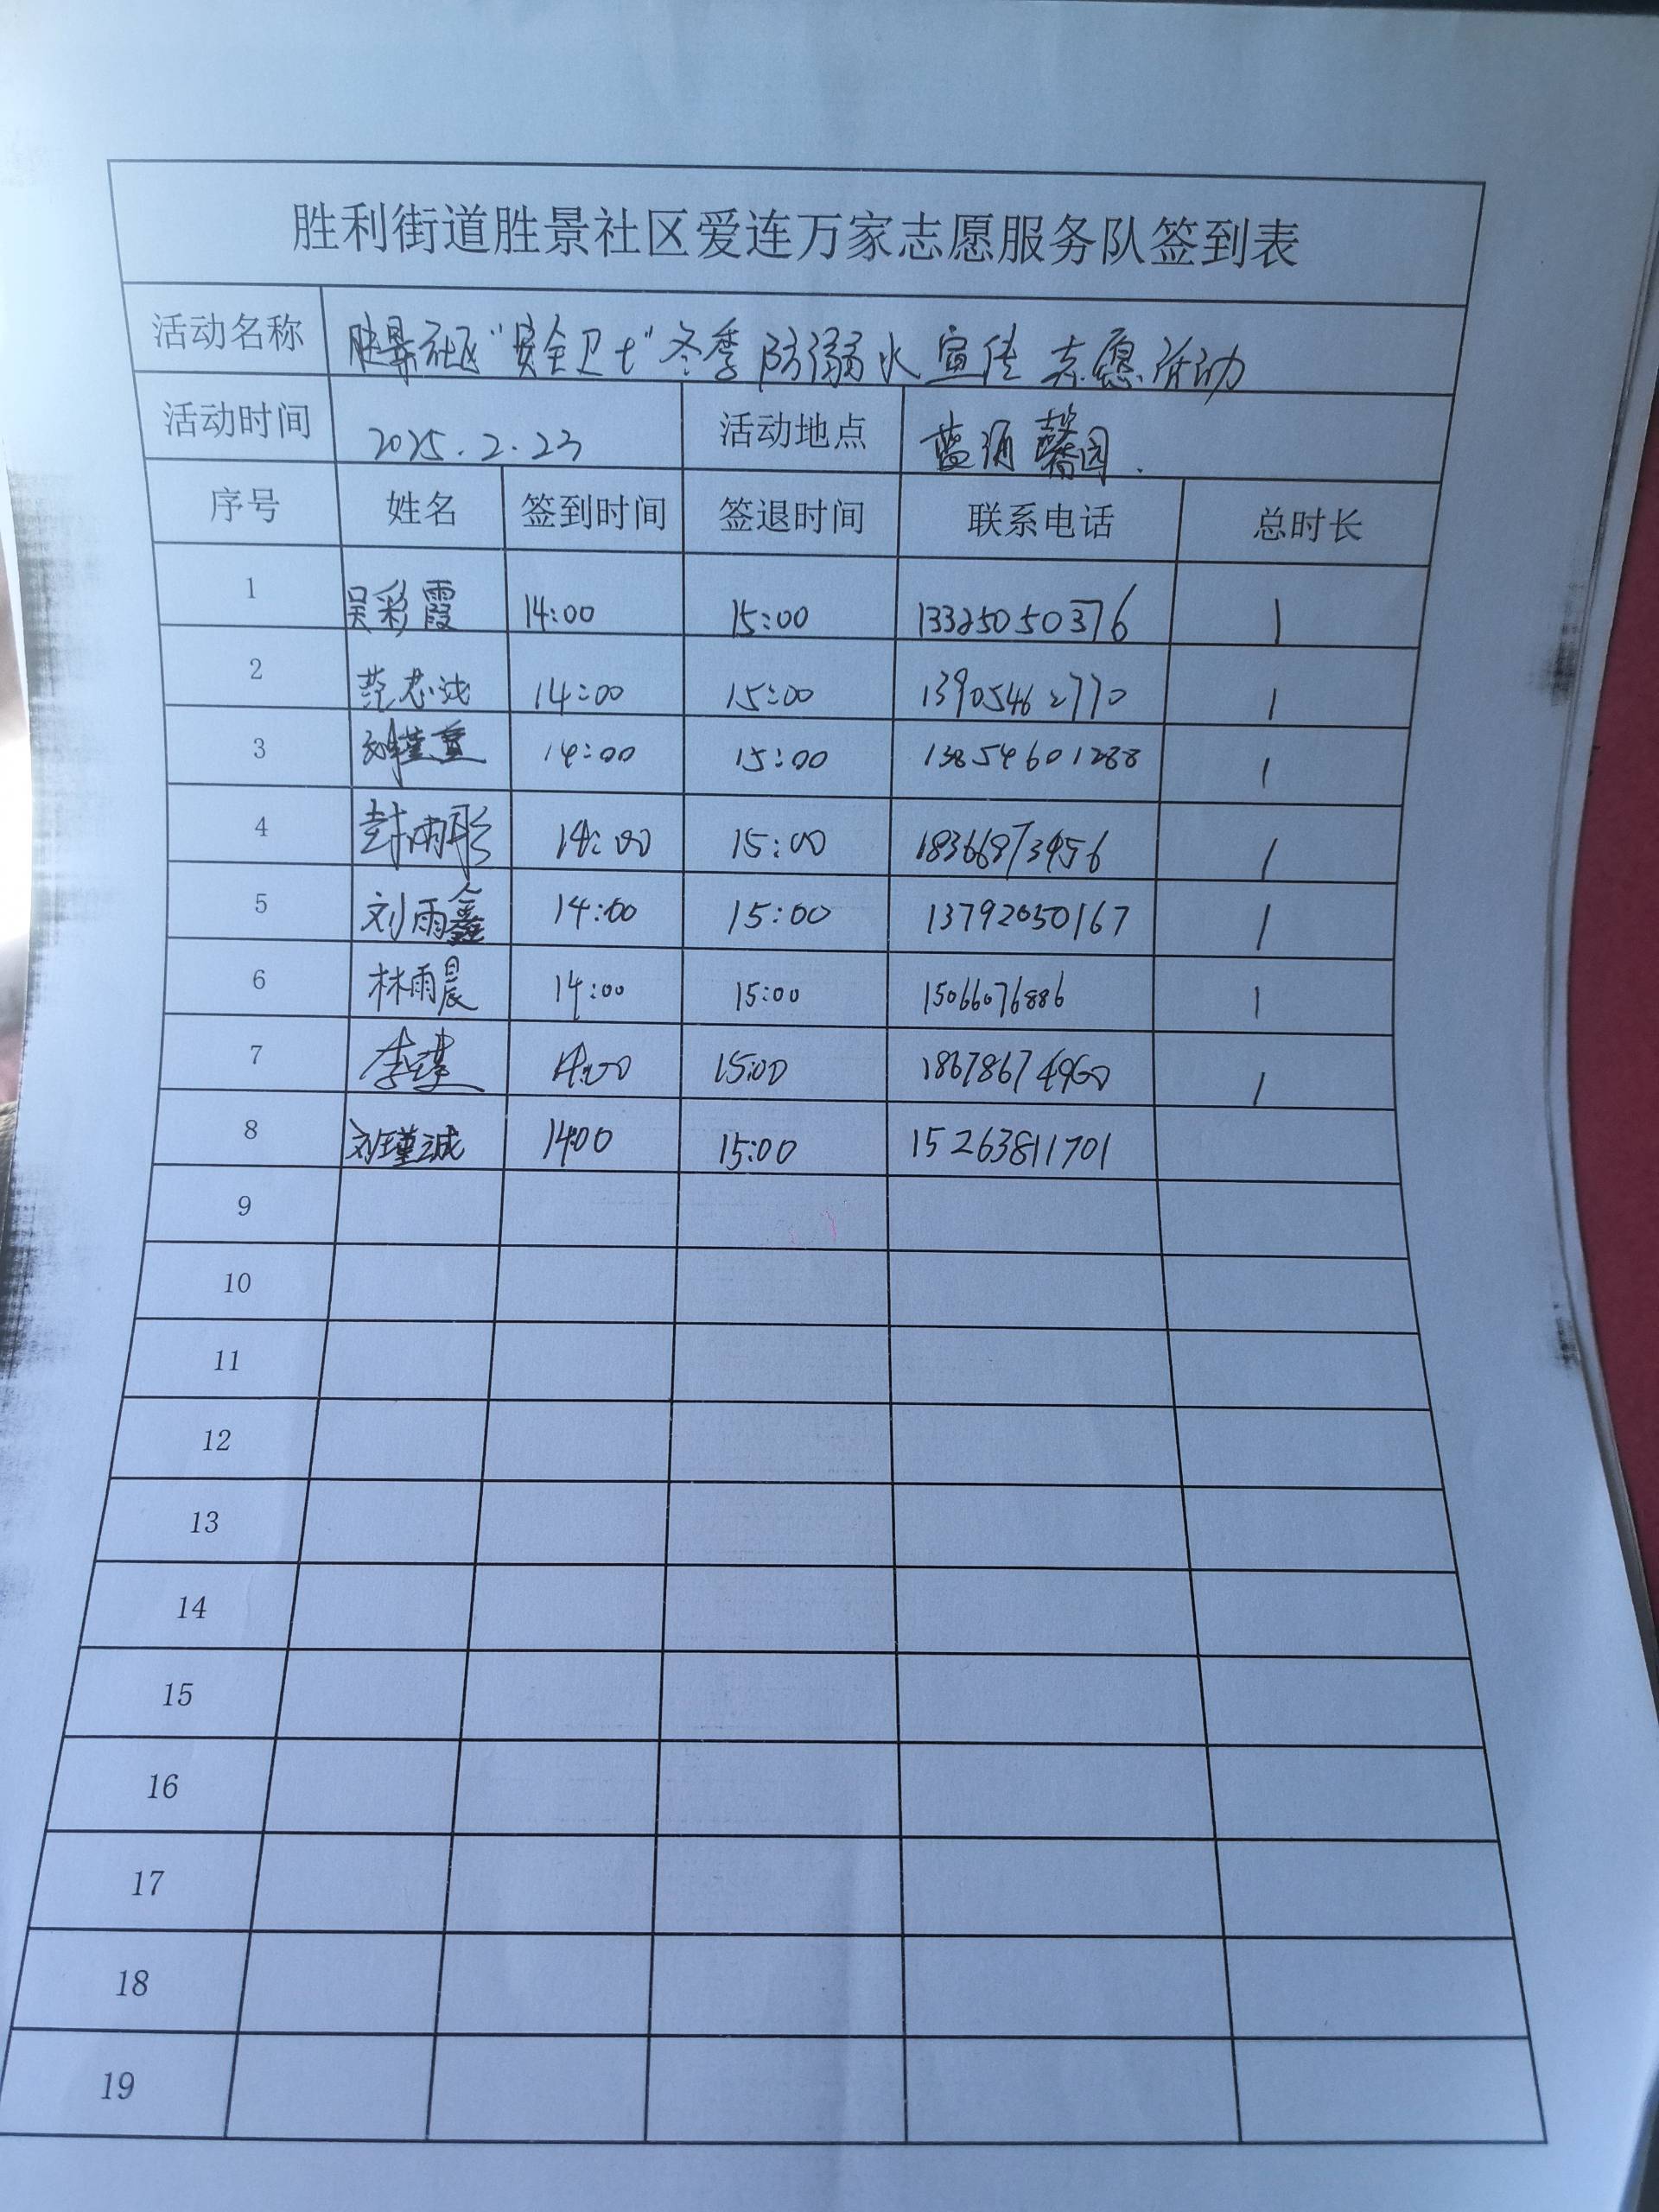 胜利街道胜景社区爱连万家志愿服务队签到表
活动名称 胜景社区"安全卫士"冬季防溺水宣传志愿活动
活动时间 2025.2.23 活动地点 蓝湾馨园.
序号 姓名 签到时间 签退时间 联系电话 总时长
1 吴彩霞 14:00 15:00 13325050376 1
2 14:00 15:00 13905462770 1
3 14:00 15:00 13854601288 1
4 封雨彤 14:00 15:00 18366873456 1
5 刘雨鑫 14:00 15:00 13792050167 1
6 林雨晨 14:00 15:00 15066076886 1
7 14:00 15:00 18678674960 1
8 刘瑾诚 14:00 15:00 15263811701
9
10
11
12
13
14
15
16
17
18
19